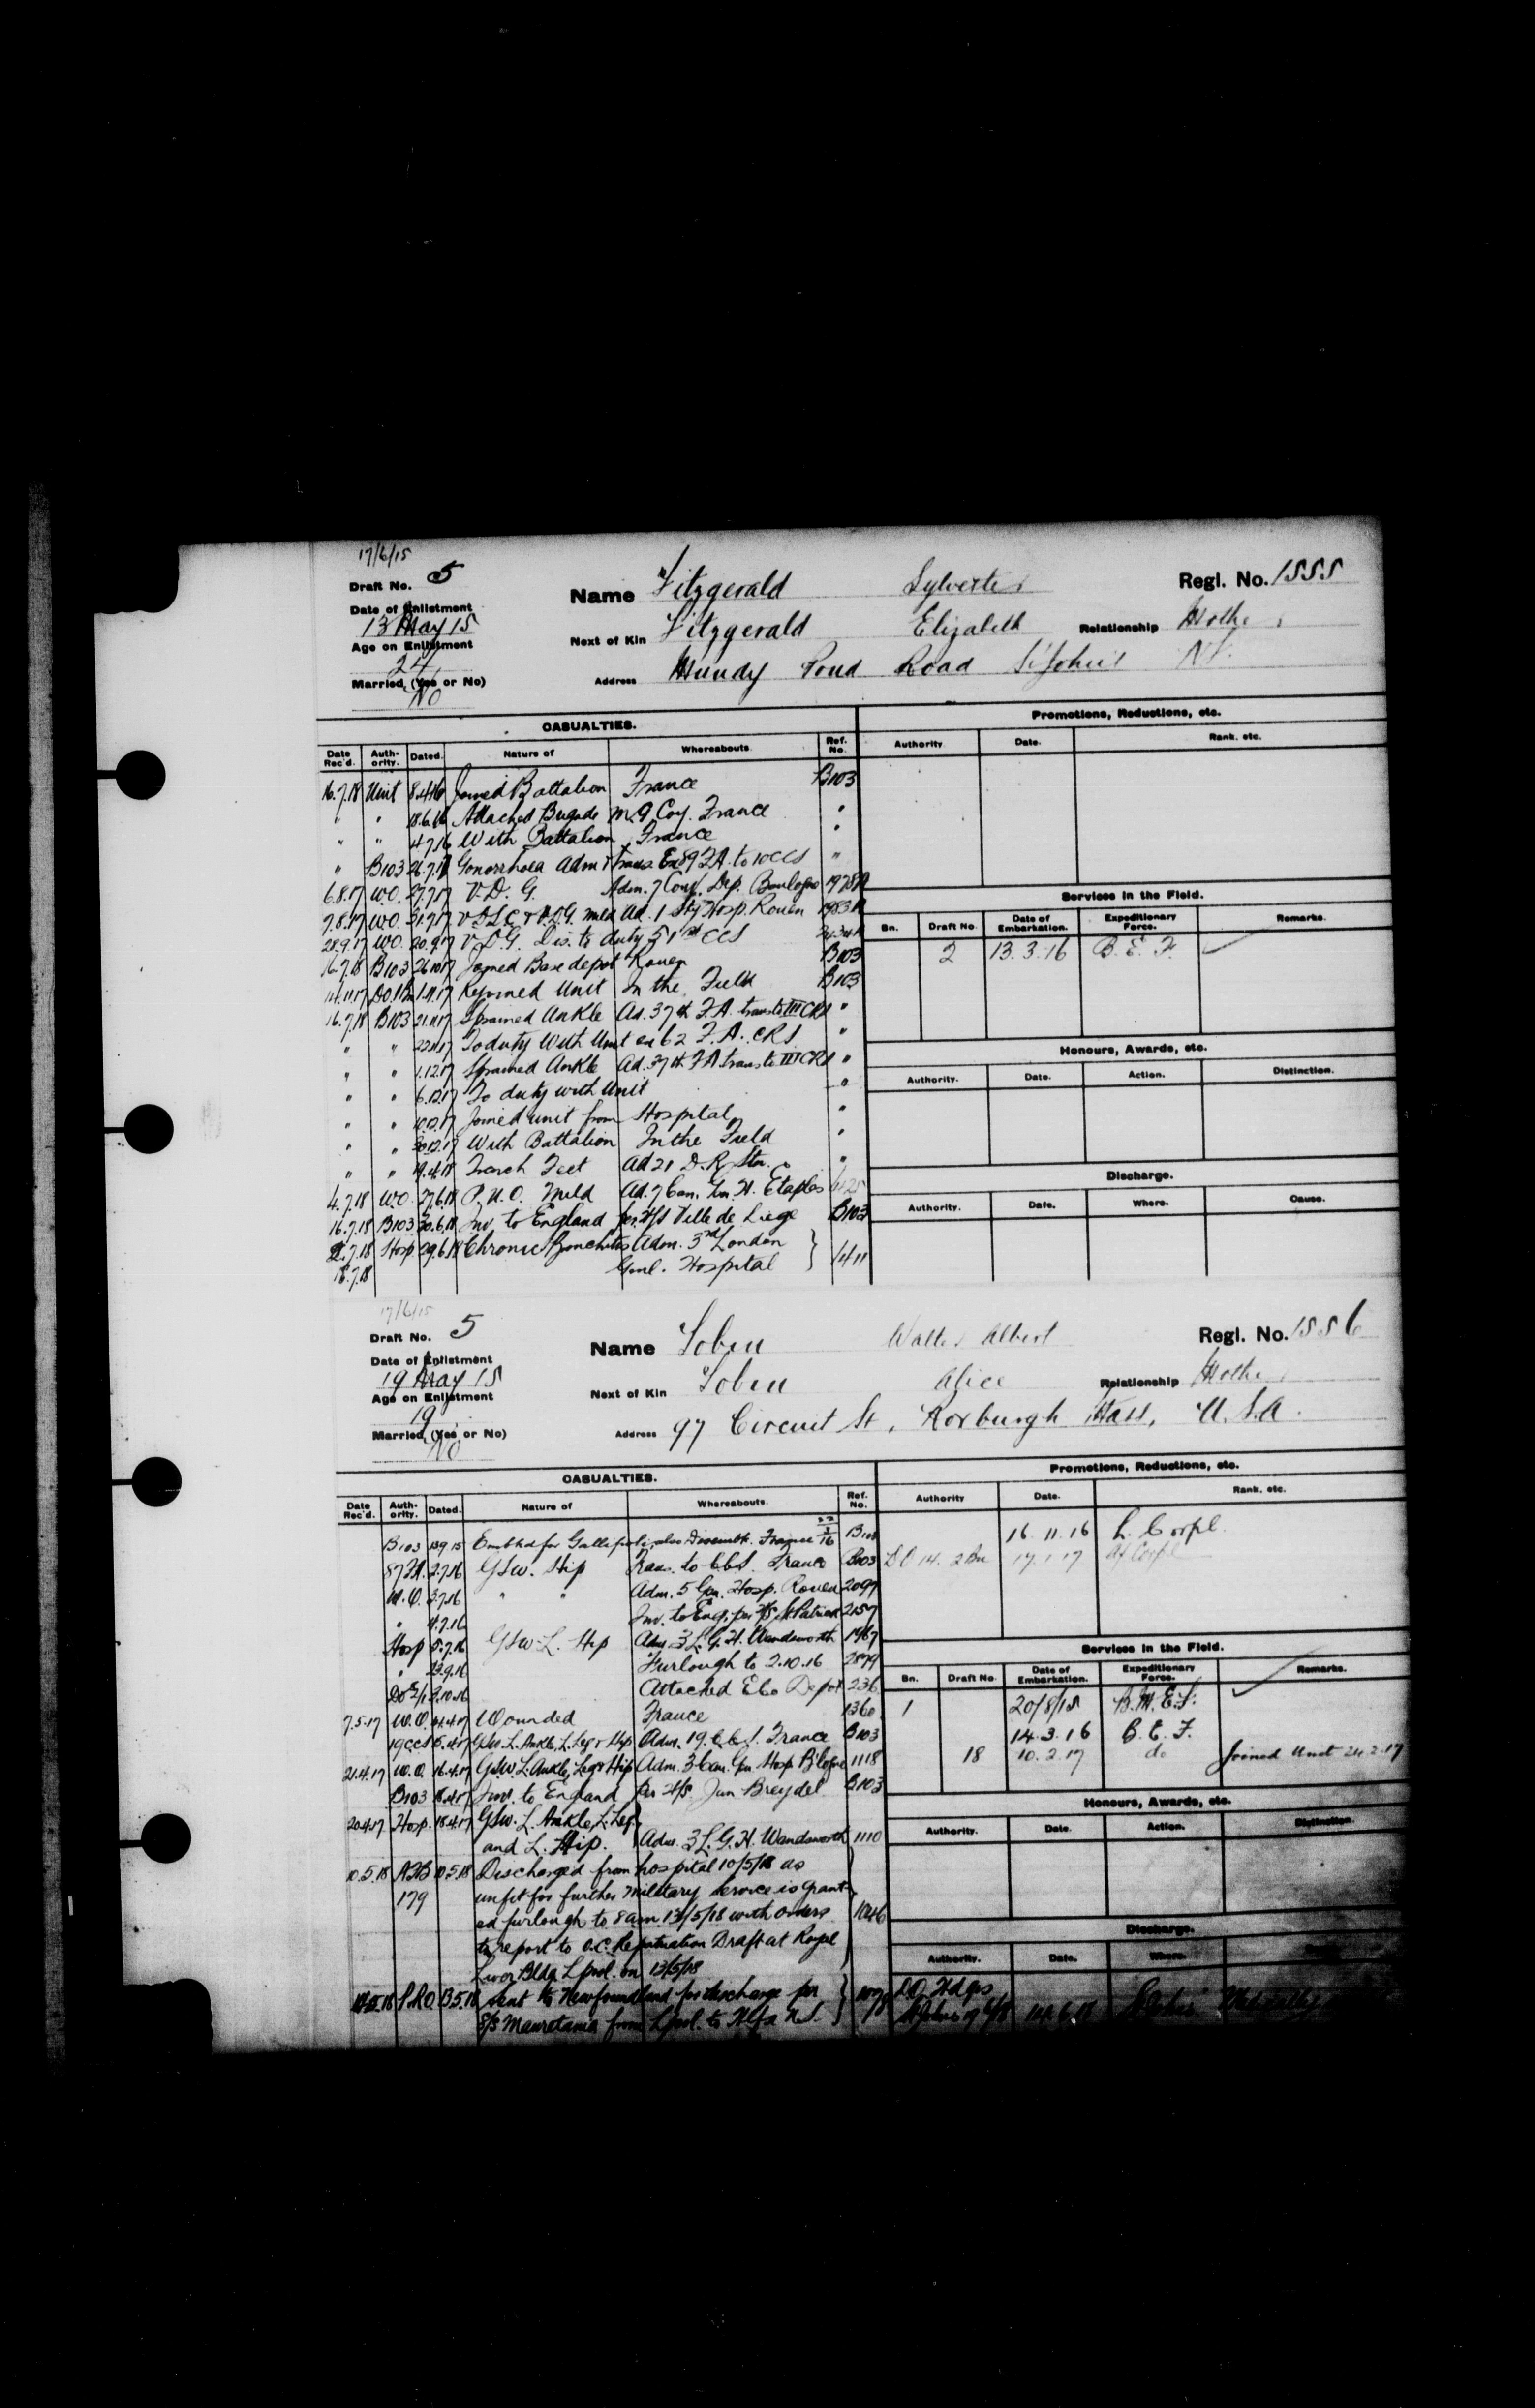 17/6/15
Draft No. 5
Name Fitzgerald Sylvester Regl. No. 1555
Date of Enlistment
13 May 15
Next of Kin Fitzgerald Elizabeth Relationship Mother
Age on Enlistment
24
Address Mundy Pond Road St John's Nf.
Married (Yes or No)
No
CASUALTIES. Promotions, Reductions, etc.
Date Rec'd. Authority. Dated. Nature of Whereabouts. Ref. No. Authority. Date. Rank. etc.
16.7.18 Unit 8.4.16 Joined Battalion France B103
" " 18.6.16 Attached Brigade M.G. Coy. France "
" " 4.7.16 With Battalion France "
" B103 26.7.17 Gonorrhoea Adm & trans. Ex 89 F.A. to 10 CCS "
6.8.17 W.O. 27.7.17 V.D.G. Adm. 7 Conv. Dep. Boulogne
7.8.17 W.O. 31.7.17 V.D.S.C & V.D.G. mild Ad. 1 Sty Hosp. Rouen
28.9.17 W.O. 20.9.17 V.D.G. Dis. to duty 51st CCS
16.7.18 B103 26.10.17 Joined Base depot Rouen B103
14.11.17 D.O. 1 Bn 1.11.17 Rejoined Unit In the Field B103
16.7.18 B103 21.11.17 Sprained Ankle Ad. 37th F.A. trans to III CRS "
" " 22.11.17 To duty with Unit ex 62 F.A. CRS "
" " 1.12.17 Sprained Ankle Ad. 37th F.A trans to III CRS "
" " 6.12.17 To duty with Unit "
" " 10.12.17 Joined unit from Hospital "
" " 30.12.17 With Battalion In the Field "
" " 19.4.18 Trench Feet Ad 21 D.R. Stn. "
4.7.18 W.O. 27.6.18 P.U.O. Mild Ad. 7 Can. Gen. H. Etaples
16.7.18 B103 30.6.18 Inv. to England per H/S Ville de Liege B103
2.7.18 Hosp 29.6.18 Chronic Bronchitis Adm. 3rd London
18.7.18 Genl. Hospital 1411
Services in the Field.
Bn. Draft No. Date of Embarkation. Expeditionary Force. Remarks.
2 13.3.16 B.E.F.
Honours, Awards, etc.
Authority. Date. Action. Distinction.
Discharge.
Authority. Date. Where. Cause.
17/6/15
Draft No. 5
Name Tobin Walter Albert Regl. No. 1556
Date of Enlistment
19 May 15
Next of Kin Tobin Alice Relationship Mother
Age on Enlistment
19
Address 97 Circuit St, Roxburgh Mass, U.S.A.
Married (Yes or No)
No
CASUALTIES. Promotions, Reductions, etc.
Date Rec'd. Authority. Dated. Nature of Whereabouts. Ref. No. Authority Date. Rank. etc.
B103 13.9.15 Embkd for Gallipoli, also Disembk. France B103
87 F.A. 2.7.16 G.S.W. Hip Trans. to CCS. France B103
W.O. 3.7.16 " " Adm. 5 Gen. Hosp. Rouen 2097
" 4.7.16 Inv. to Eng. per H/S St Patrick 2157
Hosp 5.7.16 GSW. L. Hip Adm 3 L.G.H. Wandsworth 1967
" 23.9.16 Furlough to 2.10.16 2879
Attached E Co Depot 236
7.5.17 W.O. Wounded France 1360
19 CCS G.S.W. L. Ankle, L. Leg & Hip Adm. 19. C.C.S. France B103
21.4.17 W.O. 16.4.17 G.S.W L. Ankle, Leg & Hip Adm. 3 Can. Gen Hosp B'logne 1118
B103 Inv. to England per H/S. Jan Breydel B103
20.4.17 Hosp. 18.4.17 GSW. L. Ankle, L. Leg,
and L. Hip. Adm. 3 L.G.H. Wandsworth 1110
10.5.18 AFB 10.5.18 Discharged from hospital 10/5/18 as
179 unfit for further military service is grant-
ed furlough to 8 am. 13/5/18 with orders 1046
to report to O.C. Repatriation Draft at Royal
Liver Bldg L'pool. on 13/5/18
P.R.O. 13.5.18 Sent to Newfoundland for discharge per
S/S Mauretania from L'pool. to Hlfx N.S.
16.11.16 L. Corpl.
D O 14. 2 Bn 17.1.17 A/ Corpl
Services in the Field.
Bn. Draft No. Date of Embarkation. Expeditionary Force. Remarks.
1 20/8/15 B.M.E.F.
14.3.16 B.E.F.
18 10.2.17 do Joined Unit 24.2.17
Honours, Awards, etc.
Authority. Date. Action. Distinction.
Discharge.
Authority. Date. Where.
D.O. Hdqrs
St Johns 14.6.18 St Johns Medically